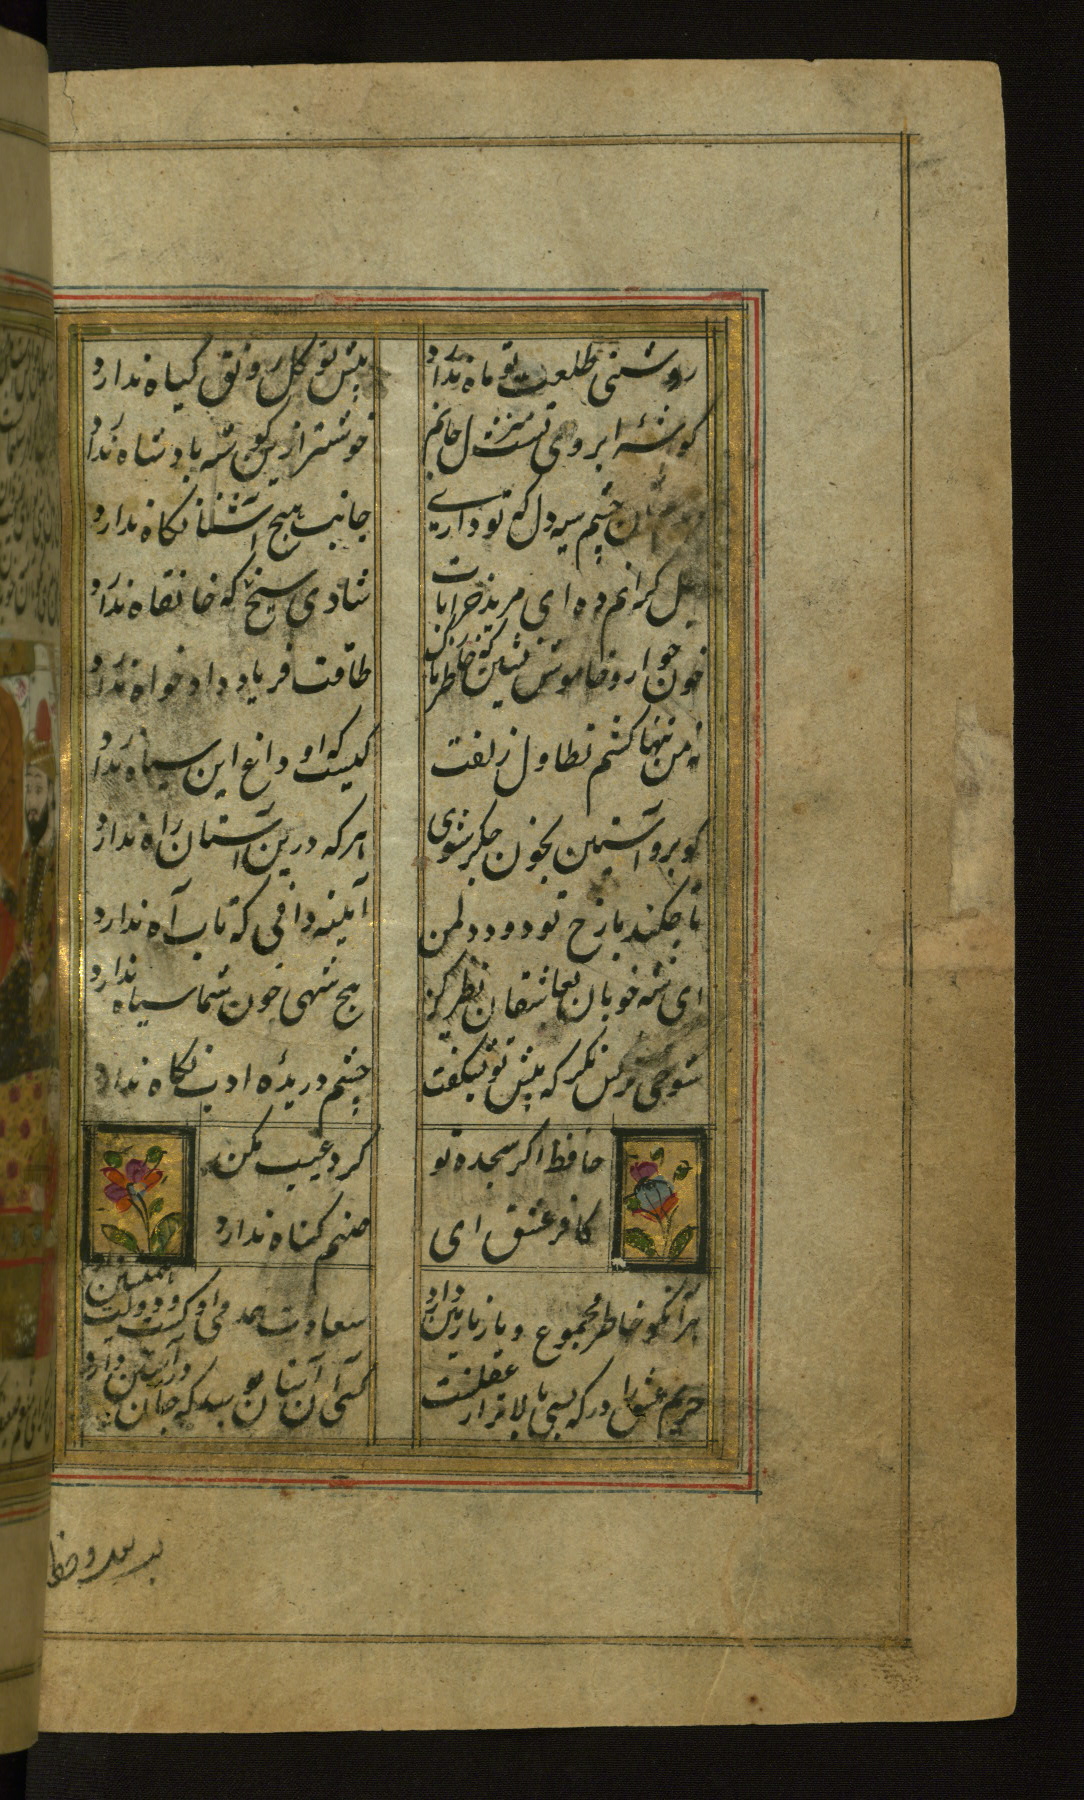 روشنی طلعت تو ماه ندارد
پیش تو کل رونق کیاه ندارد
کوشه ابروی تست منزل جانم
خوشتر ازین کوشه بادشاه ندارد
چشم سیه دل که تو داری
جانب هیچ آشنا نکاه ندارد
کرانم ده ای مرید خرابات
شادی شیخی که خانقاه ندارد
خون خور و خاموش نشین که خاطر نازک
طاقت فریاد داد خواه ندارد
نه من تنها کشم تطاول زلفت
کیست که او داغ این سیاه ندارد
کو برو آستین بخون جکر شوی
هر که درین آستان راه ندارد
تا چکند با رخ تو دود دل من
آینه دانی که تاب آه ندارد
ای شه خوبان بعاشقان نظر کن
هیچ شهی چون شما سیاه ندارد
شوخی نرکس نکر که پیش تو بشکفت
چشم دریده ادب نکاه ندارد
حافظ اکر سجده تو
کرد عیب مکن
کافر عشق ای
صنم کناه ندارد
هر آنکو خاطر مجموع و یار نازنین دارد
سعادت همدم او کشت و دولت همنشین
حریم عشق را درکه بسی بالاتر از عقلست
کسی آن آستان بوسد که جان در آستین دارد